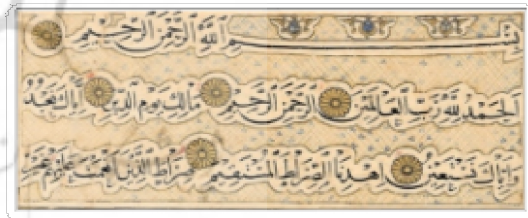 بسم الله الرحمن الرحيم
الحمد لله رب العالمين الرحمن الرحيم مالك يوم الدين اياك نعبد
واياك نستعين اهدنا الصراط المستقيم صراط الذين انعمت عليهم غير